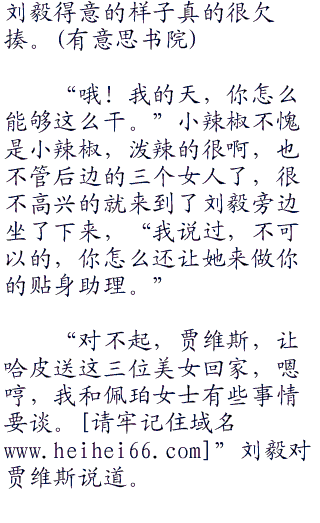 刘毅得意的样子真的很欠
揍。(有意思书院)
“哦！我的天，你怎么
能够这么干。”小辣椒不愧
是小辣椒，泼辣的很啊，也
不管后边的三个女人了，很
不高兴的就来到了刘毅旁边
坐了下来，“我说过，不可
以的，你怎么还让她来做你
的贴身助理。”
“对不起，贾维斯，让
哈皮送这三位美女回家，嗯
哼，我和佩珀女士有些事情
要谈。[请牢记住域名
www.heihei66.com]”刘毅对
贾维斯说道。